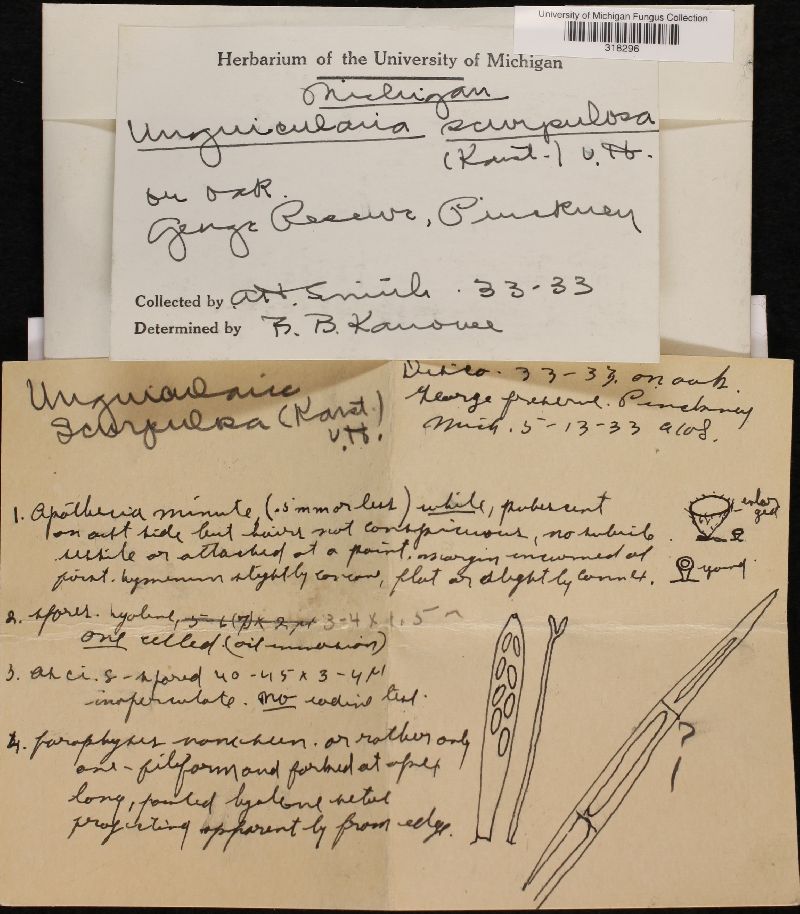 University of Michigan Fungus Collection
318296
Herbarium of the University of Michigan
Michigan
Unguicularia scurpulosa
(Karst.) v.H.
on oak.
George Reserve, Pinckney
Collected by A.H. Smith . 33-33
Determined by B. B. Kanouse
Unguicularia
Scurpulosa (Karst.)
v.H.
Disco. 33-33. on oak.
George preserve. Pinckney
Mich. 5-13-33
1. Apothecia minute (.5 mm or less) white, pubescent
on out side but hairs not conspicuous, no
sessile or attached at a point. margin incurved at
point. hymenium slightly concave, flat or slightly convex.
enlarged
young
2. spores. hyaline, 5-6(7) x 2 µ 3-4 x 1.5
one celled. (oil immersion)
3. asci. 8-spored 40-45 x 3-4 µ
inoperculate. no iodine test.
4. paraphyses none seen. or rather only
one - filiform and forked at apex
long, pointed hyaline setae
projecting apparently from edge.
?